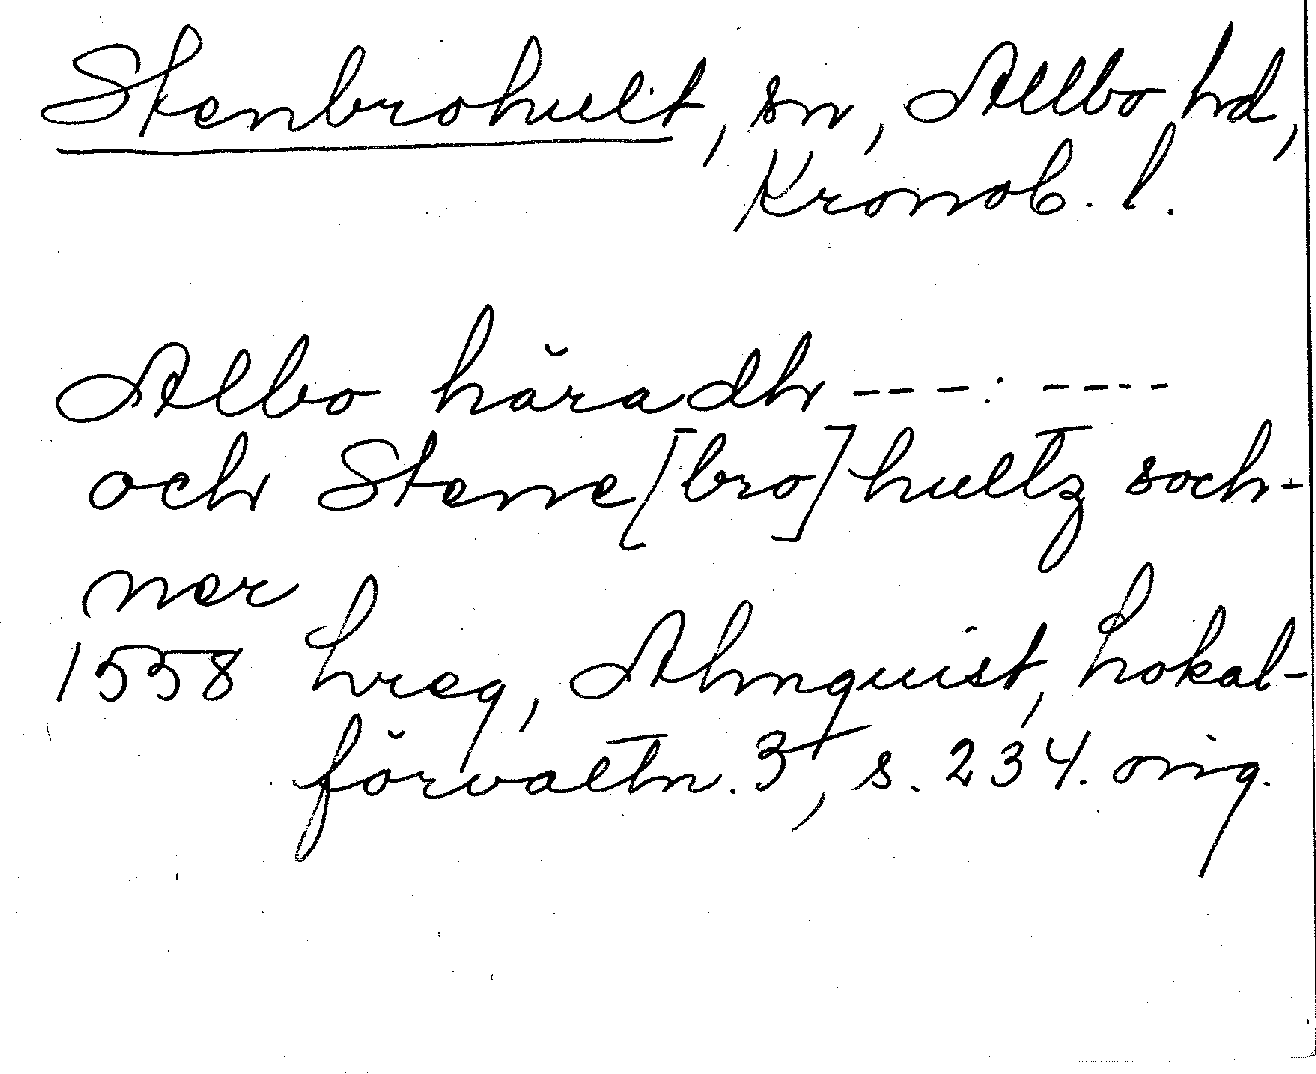 Stenbrohult, sn, Allbo hd,
Kronob. l.
Albo häradh ---:----
och Stene[bro]hultz soch-
ner
1558 hreg, Almquist, Lokal-
förvaltn. 3, s. 234. orig.